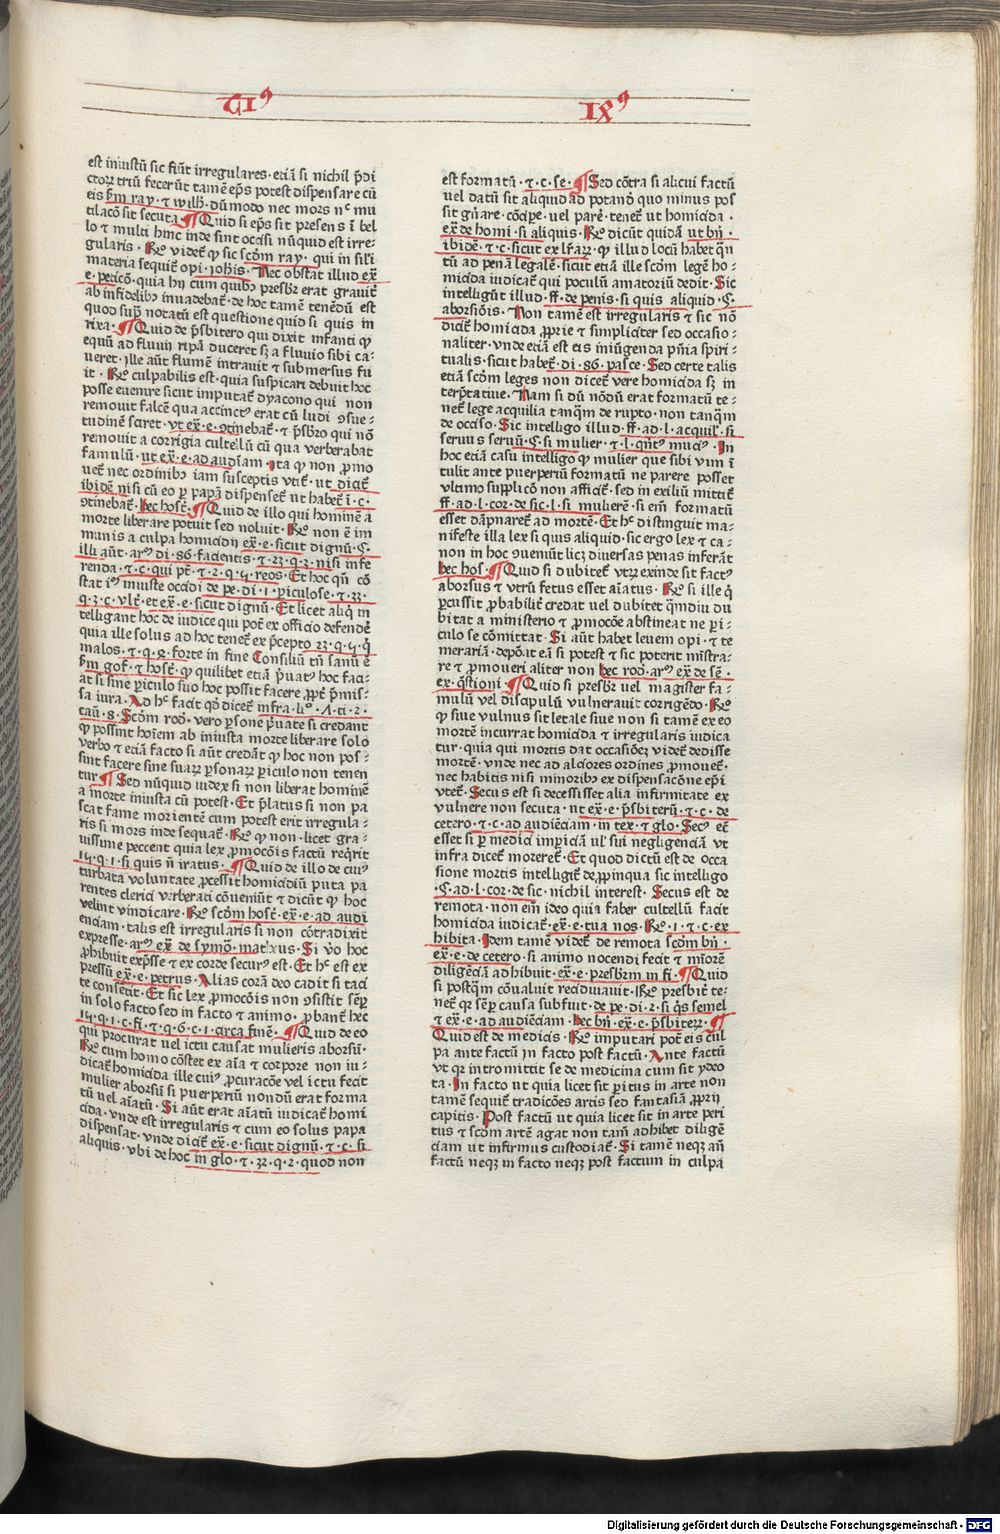 TI⁹ IX⁹
est iniustū sic fiūt irregulares · etiā si nichil p̄di
ctorꝝ triū fecerūt tamē ep̄s potest dispensare cū
eis ẜm ray · ⁊ wilh̄ · dūmodo nec mors nᶜ mu
tilacō sit secuta ¶ Quid si ep̄s sit presens ī bel
lo ⁊ multi hinc inde sint occisi nūquid est irre⸗
gularis · Rᵒ videt̄ ꝙ sic scd̄m ray · qui in sil̄i
materia sequit̄ opi · ioh̄is · Nec obstat illud ex̄
e · peticō · quia hij cum quib⁹ presbr̄ erat grauit̄
ab infidelib⁹ inuadebat̄ · de hoc tamē tenēdū est
quod sup̄ notatū est questione quid si quis in
rixa · ¶ Quid de p̄sbitero qui dixit infanti ꝙ
equū ad fluuij ripā duceret sꝫ a fluuio sibi ca⸗
ueret · ille aūt flumē intrauit ⁊ submersus fu
it · Rᵒ culpabilis est · quia suspicari debuit hoc
posse euenire sicut imputat̄ dyacono qui non
remouit falcē qua accinct⁹ erat cū ludi ꝯsue⸗
tudinē sciret · vt ex̄ · e · ꝯtinebat̄ · ⁊ p̄sbr̄o qui nō
remouit a corrigia cultellū cū qua verberabat
famulū · ut ex̄ · e · ad audiam · ita ꝙ non ꝓmo
uet̄ nec ordinib⁹ iam susceptis vtit̄ · ut dicit̄
ibidē nisi cū eo ꝑ papā dispenset̄ ut habet̄ ī · c ·
ꝯtinebat̄ · hec host̄ · ¶ Quid de illo qui hominē a
morte liberare potuit sed noluit · Rᵒ non ē im
munis a culpa homicidij ex̄ · e · sicut dignū · C ·
illi aūt · arᵐ di · 86 · facientis · ⁊ 23 · q · 3 · nisi infe
renda · ⁊ c · qui pt̄ · ⁊ · 2 · q · 4 · reos · Et hoc qn̄ cō
stat iᵐ iniuste occidi de pe · di · 1 · ꝑiculose · ⁊ 23 ·
q · 3 · c · vlt̄ · et ex̄ · e · sicut dignū · Et licet aliq̄ in
telligant hoc de iudice qui pōt ex officio defendē
quia ille solus ad hoc tenet̄ ex p̄cepto 23 · q · 4 · q̄
malos · ⁊ · q · 8 · forte in fine Consiliū tn̄ sanū ē
ẜm gof̄ · ⁊ host̄ · ꝙ quilibet etiā p̄uat⁹ hoc faci⸗
at si sine ꝑiculo suo hoc possit facere ꝓpt̄ p̄mis⸗
sa iura · Ad hᶜ facit qd̄ dicet̄ infra · liᵒ · 4 · ti · 2 ·
caū · 8 · Scd̄m rod̄ · vero ꝑsone p̄uate si credant
ꝙ possint hoīem ab iniusta morte liberare solo
verbo ⁊ etiā facto si aūt credāt ꝙ hoc non pos⸗
sint facere sine suarꝝ ꝑsonarꝝ ꝑiculo non tenen
tur ¶ Sed nūquid iudex si non liberat hominē
a morte iniusta cū potest · Et p̄latus si non pa
scat fame morientē cum potest erit irregula⸗
ris si mors inde sequat̄ · Rᵒ ꝙ non · licet gra⸗
uissime peccent quia lex ꝓmocōis factū req̄rit
15 · q · 1 · si quis n̄ iratus · ¶ Quid de illo de cui⁹
turbata voluntate ꝓcessit homicidiū puta pa
rentes clerici verberati cōueniūt ⁊ dicūt ꝙ hoc
velint vindicare · Rᵒ scd̄m host̄ · ex̄ · e · ad audi
enciam · talis est irregularis si non cōtradixit
expresse · arᵐ ex̄ de symō · matheus · Si v̊o hoc
ꝓhibuit exp̄sse ⁊ ex corde secur⁹ est · Et hᶜ est ex
pressū ex̄ · e · petrus · Alias corā deo cadit si taci
te consētit · Et sic lex ꝓmocōis non ꝯsistit semꝑ
in solo facto sed in facto ⁊ animo · ꝓbant̄ hec
15 · q · 1 · c · fi · ⁊ q · 6 · c · 1 · circa finē · ¶ Quid de eo
qui procurat vel ictu causat mulieris aborsū ·
Rᵒ cum homo cōstet ex aīa ⁊ corpore non iu⸗
dicat̄ homicida ille cui⁹ ꝓcuracōe vel ictu fecit
mulier aborsū si puerperiū nondū erat forma
tū vel aīatū · Si aūt erat aīatū iudicat̄ homi
cida · vnde est irregularis ⁊ cum eo solus papa
dispensat · vnde dicit̄ ex̄ · e · sicut dignū · ⁊ · c · si
aliquis · vbi de hoc in glo · ⁊ · 32 · q · 2 · quod non
est formatū · ⁊ · c · se · ¶ Sed cōtra si alicui factū
vel datū sit aliquid ad potandū quo minus pos
sit gn̄are · cōcipe · vel parē · tenet̄ ut homicida ·
ex̄ de homi · si aliquis · Rᵒ dicūt quidā ut bn̄ ·
ibidē · ⁊ c · sicut ex lr̄arꝝ · ꝙ illud locū habet qn̄
tū ad penā legalē · sicut etiā ille scd̄m legē ho⸗
micida iudicat̄ qui poculū amatoriū dedit · Sic
intelligūt illud · ff · de penis · si quis aliquid · C ·
aborsiōis · Non tamē est irregularis ⁊ sic nō
dicit̄ homicida ꝓprie ⁊ simpliciter sed occasio⸗
naliter · vnde etiā est eis iniūgenda pn̄ia spiri⸗
tualis · sicut habet̄ · di · 86 · pasce · Sed certe talis
etiā scd̄m leges non dicet̄ vere homicida sꝫ in
terp̄tatiue · Nam si dū nōdū erat formatū te⸗
net̄ lege acquilia tanq̄m de rupto · non tanq̄m
de occiso · Sic intelligo illud · ff · ad · l · acquil̄ · si
seruus seruū · C · si mulier · ⁊ · l · qn̄t⁹ muci⁹ · In
hoc etiā casu intelligo ꝙ mulier que sibi vim ī
tulit ante puerperiū formatū ne parere posset
vltimo supplicō non afficit̄ · sed in exiliū mittit̄
ff · ad · l · cor · de sic · l · si mulierē · si eīm formatū
esset dāpnaret̄ ad mortē · Et hᶜ distinguit ma⸗
nifeste illa lex si quis aliquid · sic ergo lex ⁊ ca⸗
non in hoc ꝯueniūt licꝫ diuersas penas inferāt
hec hos · ¶ Quid si dubitet̄ vtrꝝ exinde sit fact⁹
aborsus ⁊ vtrū fetus esset aīatus · Rᵒ si ille q̄
ꝑcussit ꝓbabilit̄ credat vel dubitet qm̄diu du
bitat a ministerio ⁊ ꝓmocōe abstineat ne ꝑi⸗
culo se cōmittat · Si aūt habet leuem opi · ⁊ te
merariā · depoīt eā si potest ⁊ sic poterit mīstra⸗
re ⁊ ꝓmoueri aliter non hec rod̄ · arᵐ ex̄ de sē ·
ex · q̄stioni · ¶ Quid si presbr̄ vel magister fa⸗
mulū vel discipulū vulnerauit corrigēdo · Rᵒ
ꝙ siue vulnus sit letale siue non si tamē ex eo
mortē incurrat homicida ⁊ irregularis iudica
tur · quia qui mortis dat occasiōeꝫ videt̄ dedisse
mortē · vnde nec ad alciores ordines ꝓmouet̄ ·
nec habitis nisi minorib⁹ ex dispensacōne ep̄i
vtet̄ · Secus est si decessisset alia infirmitate ex
vulnere non secuta · ut ex̄ · e · p̄sbiterū · ⁊ · c · de
cetero · ⁊ · c · ad audiēciam · in tex · ⁊ glo · Sec⁹ ec̄
esset si ꝑ medici imꝑiciā ul̄ sui negligenciā vt
infra dicet̄ moreret̄ · Et quod dictū est de occa
sione mortis intelligit̄ de ꝓpinqua sic intelligo
· C · ad · l · cor · de sic · nichil interest · Secus est de
remota · non eīm ideo quia faber cultellū facit
homicida iudicat̄ · ex̄ · e · tua nos · Rᵒ · 1 · ⁊ c · ex
hibita · Idem tamē videt̄ de remota scd̄m bn̄ ·
ex̄ · e · de cetero · si animo nocendi fecit ⁊ miōrē
diligēciā adhibuit · ex̄ · e · presbr̄m in fi · ¶ Quid
si postq̄m cōualuit recidiuauit · Rᵒ presbit̄ te⸗
net̄ qꝛ semꝑ causa subfuit · de pe · di · 2 · si q̄s semel
⁊ ex̄ · e · ad audiēciam · hec bn̄ · ex̄ · e · p̄sbiterꝝ · ¶
Quid est de medicis · Rᵒ imputari pōt eis cul
pa ante factū in facto post factū · Ante factū
vt qꝛ intromittit se de medicina cum sit ydeo
ta · In facto ut quia licet sit ꝑitus in arte non
tamē sequit̄ tradicōes artis sed fantasiā ꝓprij
capitis · Post factū ut quia licet sit in arte ꝑi
tus ⁊ scd̄m artē agat non tam̄ adhibet diligē
ciam ut infirmus custodiat̄ · Si tamē neqꝫ añ
factū neqꝫ in facto neqꝫ post factum in culpa
Digitalisierung gefördert durch die Deutsche Forschungsgemeinschaft - DFG